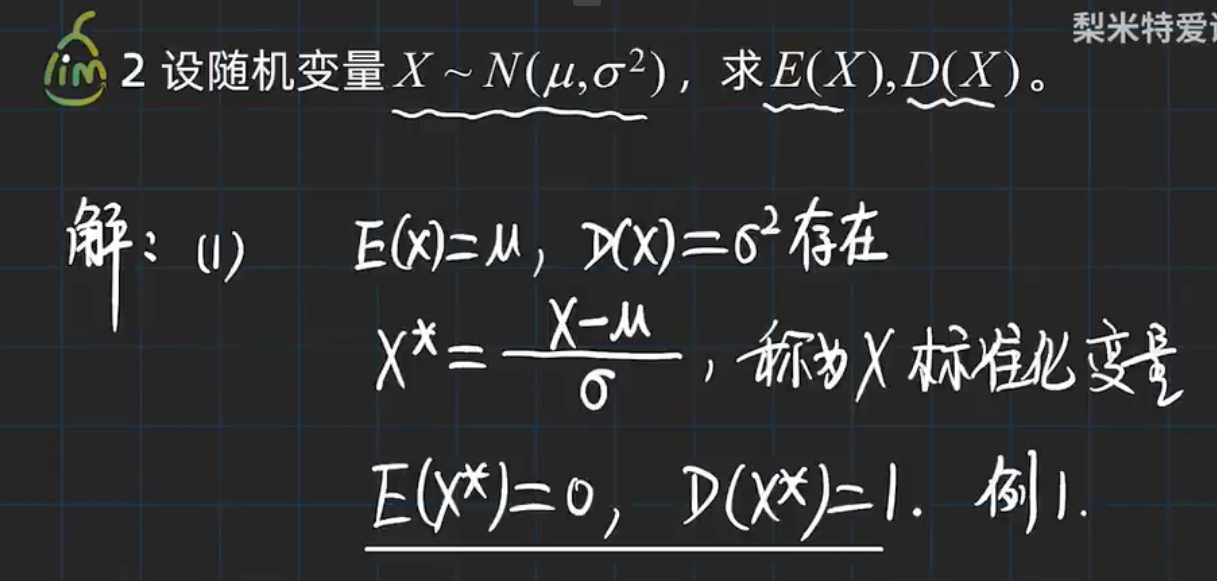 梨米特爱
lim 2 设随机变量 X ~ N(μ,σ²)，求E(X),D(X)。
解：(1) E(X)=μ，D(X)=σ²存在
X* = (X-μ)/σ，称为X标准化变量
E(X*)=0，D(X*)=1. 例1.